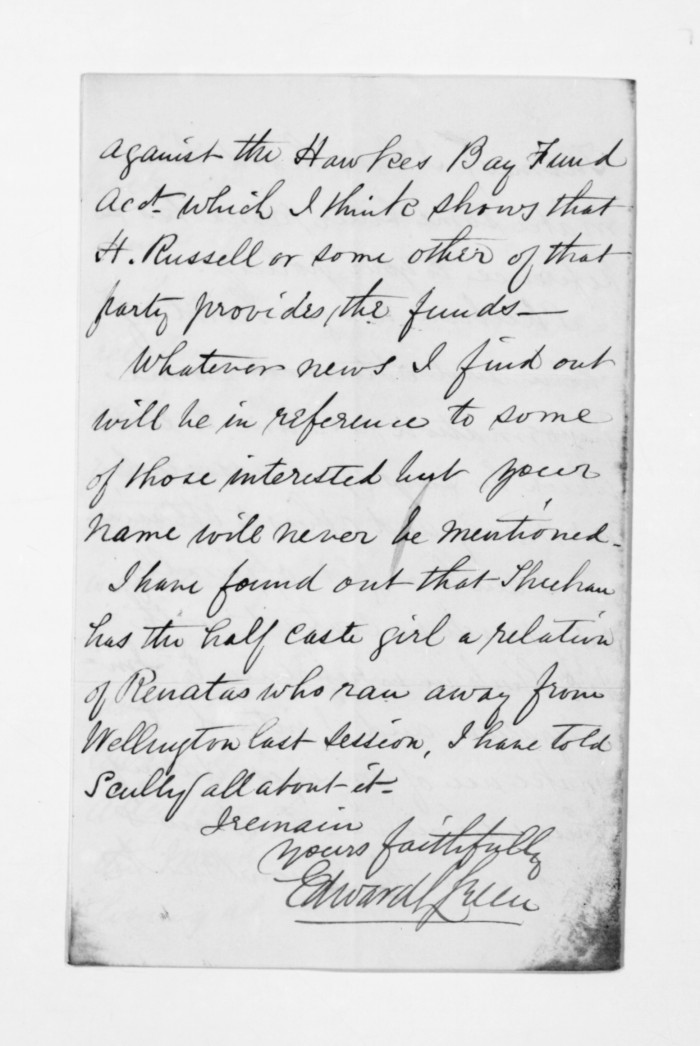 against the Hawkes Bay Fund
Acct. which I think shows that
H. Russell or some other of that
party provides the funds—
Whatever news I find out
will be in reference to some
of those interested but your
name will never be mentioned—
I have found out that Sheehan
has the half caste girl a relation
of Renatas who ran away from
Wellington last session, I have told
Scully all about it—
I remain
yours faithfully
Edward Green